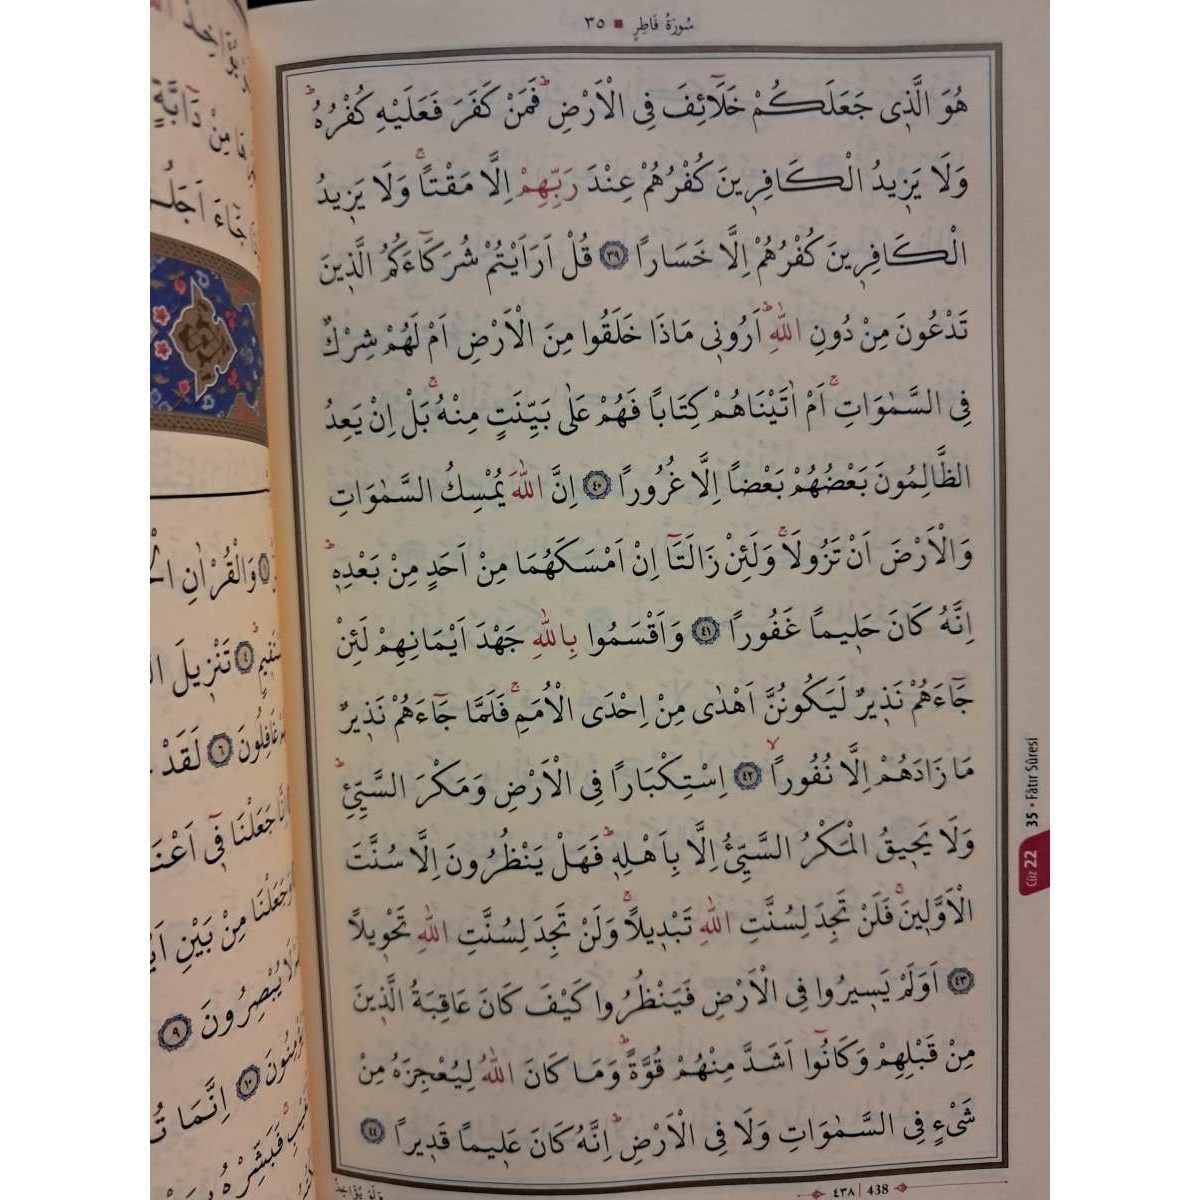 سُورَةُ فَاطِرٍ ▪ ٣٥
هُوَ الَّذٖي جَعَلَكُمْ خَلَٓائِفَ فِي الْاَرْضِؕ فَمَنْ كَفَرَ فَعَلَيْهِ كُفْرُهُؕ
وَلَا يَزٖيدُ الْكَافِرٖينَ كُفْرُهُمْ عِنْدَ رَبِّهِمْ اِلَّا مَقْتاًۚ وَلَا يَزٖيدُ
الْكَافِرٖينَ كُفْرُهُمْ اِلَّا خَسَاراً ٣٩ قُلْ اَرَاَيْتُمْ شُرَكَٓاءَكُمُ الَّذٖينَ
تَدْعُونَ مِنْ دُونِ اللّٰهِؕ اَرُونٖي مَاذَا خَلَقُوا مِنَ الْاَرْضِ اَمْ لَهُمْ شِرْكٌ
فِي السَّمٰوَاتِۚ اَمْ اٰتَيْنَاهُمْ كِتَاباً فَهُمْ عَلٰى بَيِّنَتٍ مِنْهُۚ بَلْ اِنْ يَعِدُ
الظَّالِمُونَ بَعْضُهُمْ بَعْضاً اِلَّا غُرُوراً ٤٠ اِنَّ اللّٰهَ يُمْسِكُ السَّمٰوَاتِ
وَالْاَرْضَ اَنْ تَزُولَاۚ وَلَئِنْ زَالَتَٓا اِنْ اَمْسَكَهُمَا مِنْ اَحَدٍ مِنْ بَعْدِهٖؕ
اِنَّهُ كَانَ حَلٖيماً غَفُوراً ٤١ وَاَقْسَمُوا بِاللّٰهِ جَهْدَ اَيْمَانِهِمْ لَئِنْ
جَٓاءَهُمْ نَذٖيرٌ لَيَكُونُنَّ اَهْدٰى مِنْ اِحْدَى الْاُمَمِۚ فَلَمَّا جَٓاءَهُمْ نَذٖيرٌ
مَا زَادَهُمْ اِلَّا نُفُوراًۙ ٤٢ اِسْتِكْبَاراً فِي الْاَرْضِ وَمَكْرَ السَّيِّئِؕ
وَلَا يَحٖيقُ الْمَكْرُ السَّيِّئُ اِلَّا بِاَهْلِهٖؕ فَهَلْ يَنْظُرُونَ اِلَّا سُنَّتَ
الْاَوَّلٖينَۚ فَلَنْ تَجِدَ لِسُنَّتِ اللّٰهِ تَبْدٖيلاًۚ وَلَنْ تَجِدَ لِسُنَّتِ اللّٰهِ تَحْوٖيلاً
٤٣ اَوَلَمْ يَسٖيرُوا فِي الْاَرْضِ فَيَنْظُرُوا كَيْفَ كَانَ عَاقِبَةُ الَّذٖينَ
مِنْ قَبْلِهِمْ وَكَانُٓوا اَشَدَّ مِنْهُمْ قُوَّةًؕ وَمَا كَانَ اللّٰهُ لِيُعْجِزَهُ مِنْ
شَيْءٍ فِي السَّمٰوَاتِ وَلَا فِي الْاَرْضِؕ اِنَّهُ كَانَ عَلٖيماً قَدٖيراً ٤٤
٤٣٨ | 438
35 • Fâtır Sûresi
Cüz 22
مِنْ دَٓابَّةٍ
جَٓاءَ اَجَلُ
وَالْقُرْاٰنِ
٤ تَنْزٖيلَ
غَافِلُونَ ٦ لَقَدْ
جَعَلْنَا فٖٓي
مِنْ بَيْنِ
يُبْصِرُونَ ٩
١٠ اِنَّمَا
فَبَشِّرْهُ